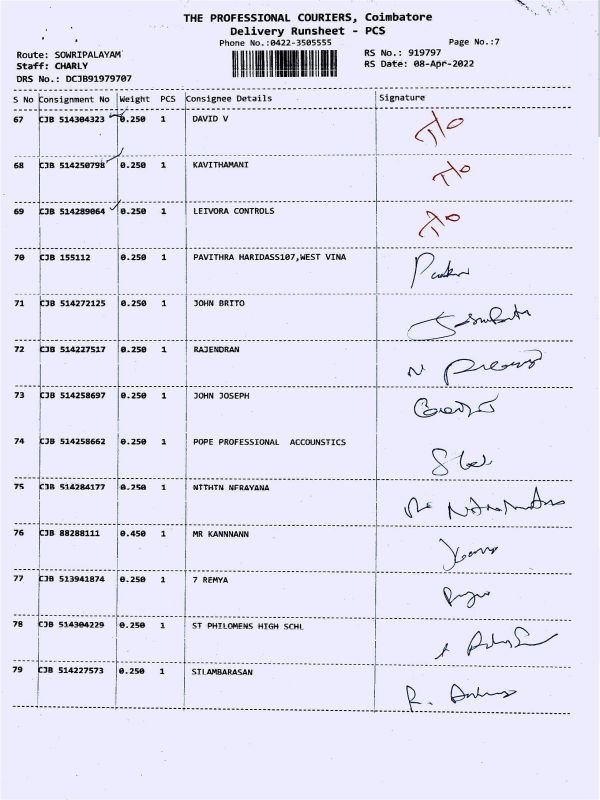 THE PROFESSIONAL COURIERS, Coimbatore
Delivery Runsheet - PCS
Phone No.:0422-3505555
Page No.:7
Route: SOWRIPALAYAM
RS No.: 919797
Staff: CHARLY
RS Date: 08-Apr-2022
DRS No.: DCJB91979707
S No Consignment No Weight PCS Consignee Details Signature
67 CJB 514304323 0.250 1 DAVID V
68 CJB 514250798 0.250 1 KAVITHAMANI
69 CJB 514289064 0.250 1 LEIVORA CONTROLS
70 CJB 155112 0.250 1 PAVITHRA HARIDASS107,WEST VINA
71 CJB 514272125 0.250 1 JOHN BRITO
72 CJB 514227517 0.250 1 RAJENDRAN
73 CJB 514258697 0.250 1 JOHN JOSEPH
74 CJB 514258662 0.250 1 POPE PROFESSIONAL ACCOUNSTICS
75 CJB 514284177 0.250 1 NITHIN NERAYANA
76 CJB 88288111 0.450 1 MR KANNNANN
77 CJB 513941874 0.250 1 7 REMYA
78 CJB 514304229 0.250 1 ST PHILOMENS HIGH SCHL
79 CJB 514227573 0.250 1 SILAMBARASAN